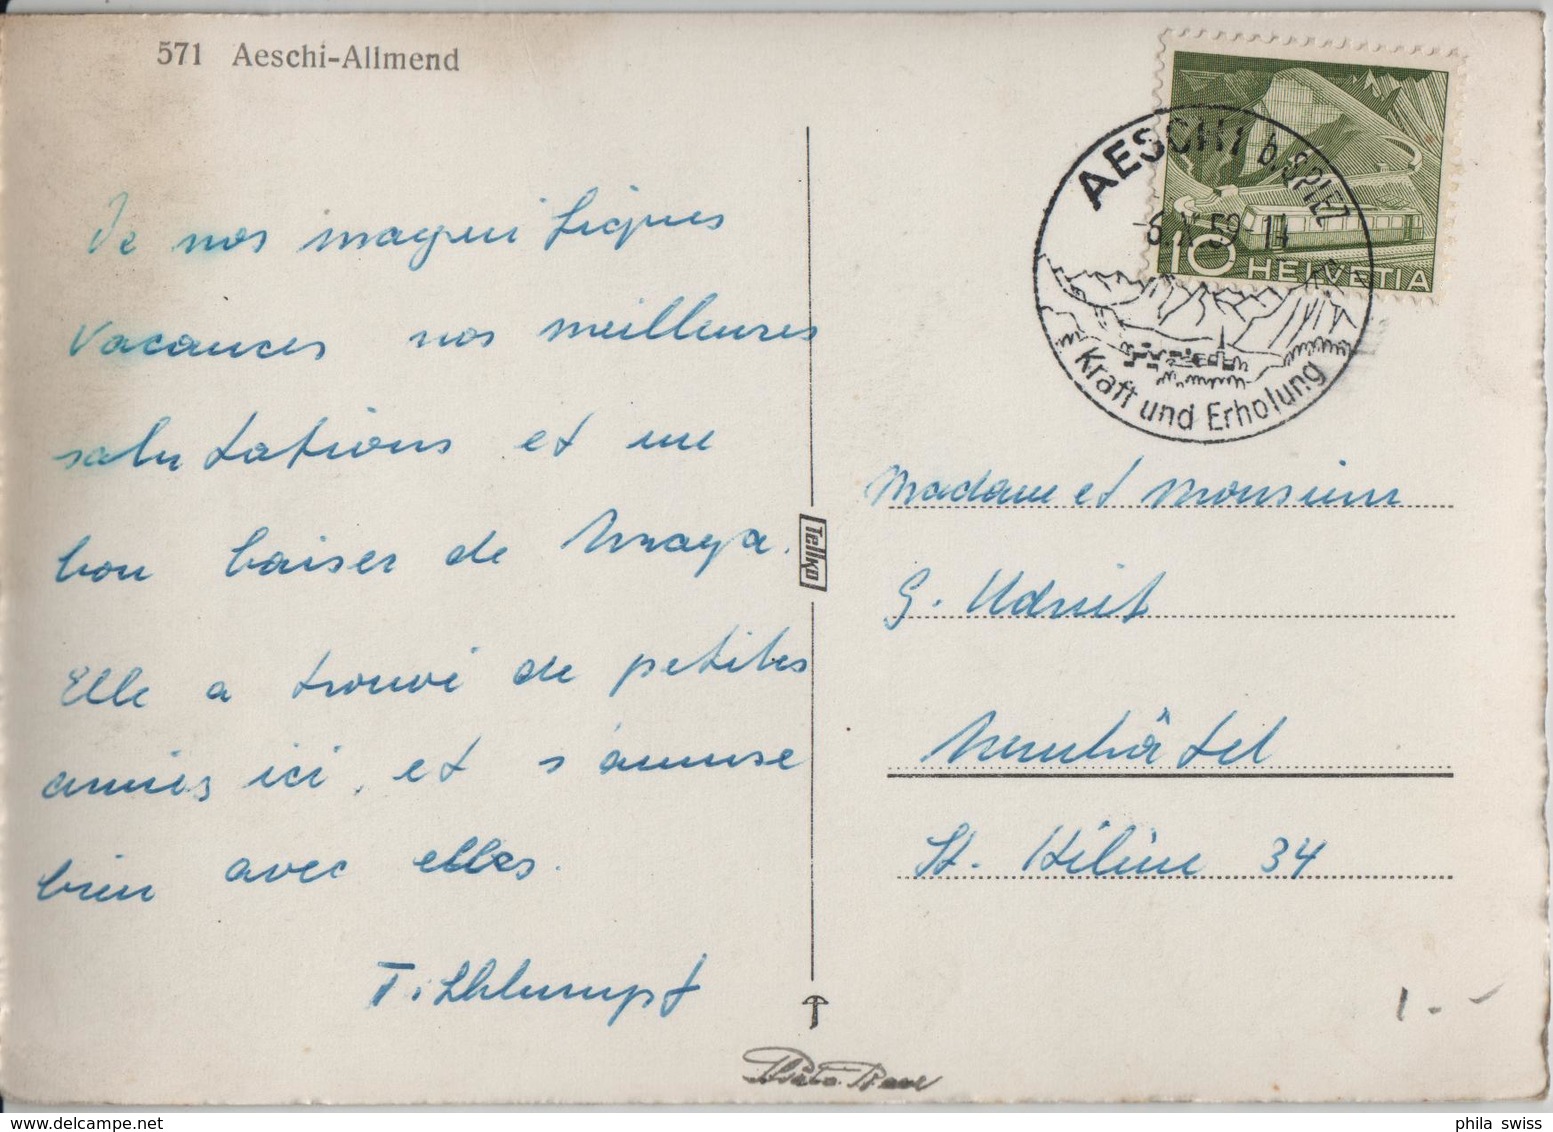 571 Aeschi-Allmend
De nos magnifiques
vacances nos meilleures
salutations et un
bon baiser de Maya.
Elle a trouvé de petites
amies ici, et s'amuse
bien avec elles.
Tellko
AESCHI b. SPIEZ
59-14
Kraft und Erholung
10 HELVETIA
Madame et Monsieur
G.
Neuchâtel
St. Hélène 34
1.-
phila swiss